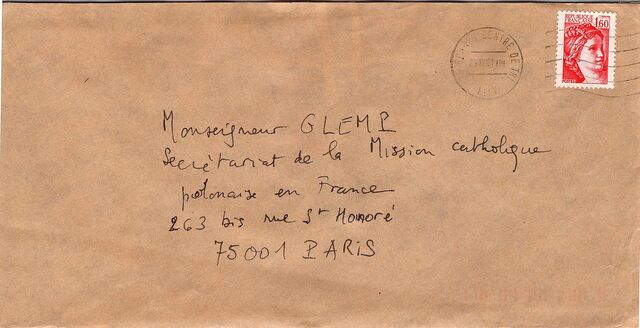 CENTRE DE TRI
REPUBLIQUE
FRANCAISE
1,60
Monseigneur GLEMP
Secrétariat de la Mission catholique
polonaise en France
263 bis rue St Honoré
75001 PARIS